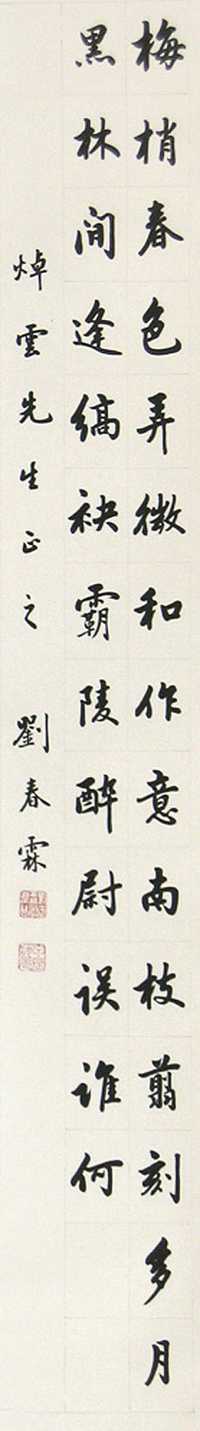 梅梢春色弄微和作意南枝翦刻多月
黑林间逢缟袂霸陵醉尉误谁何
焯雲先生正之 劉春霖